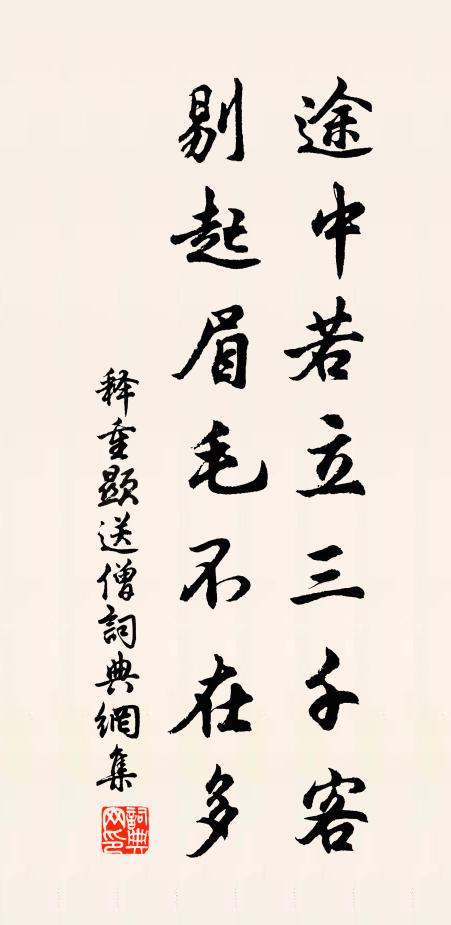 途中若立三千客
剔起眉毛不在多
释重顯送僧詞典網集
詞典網印